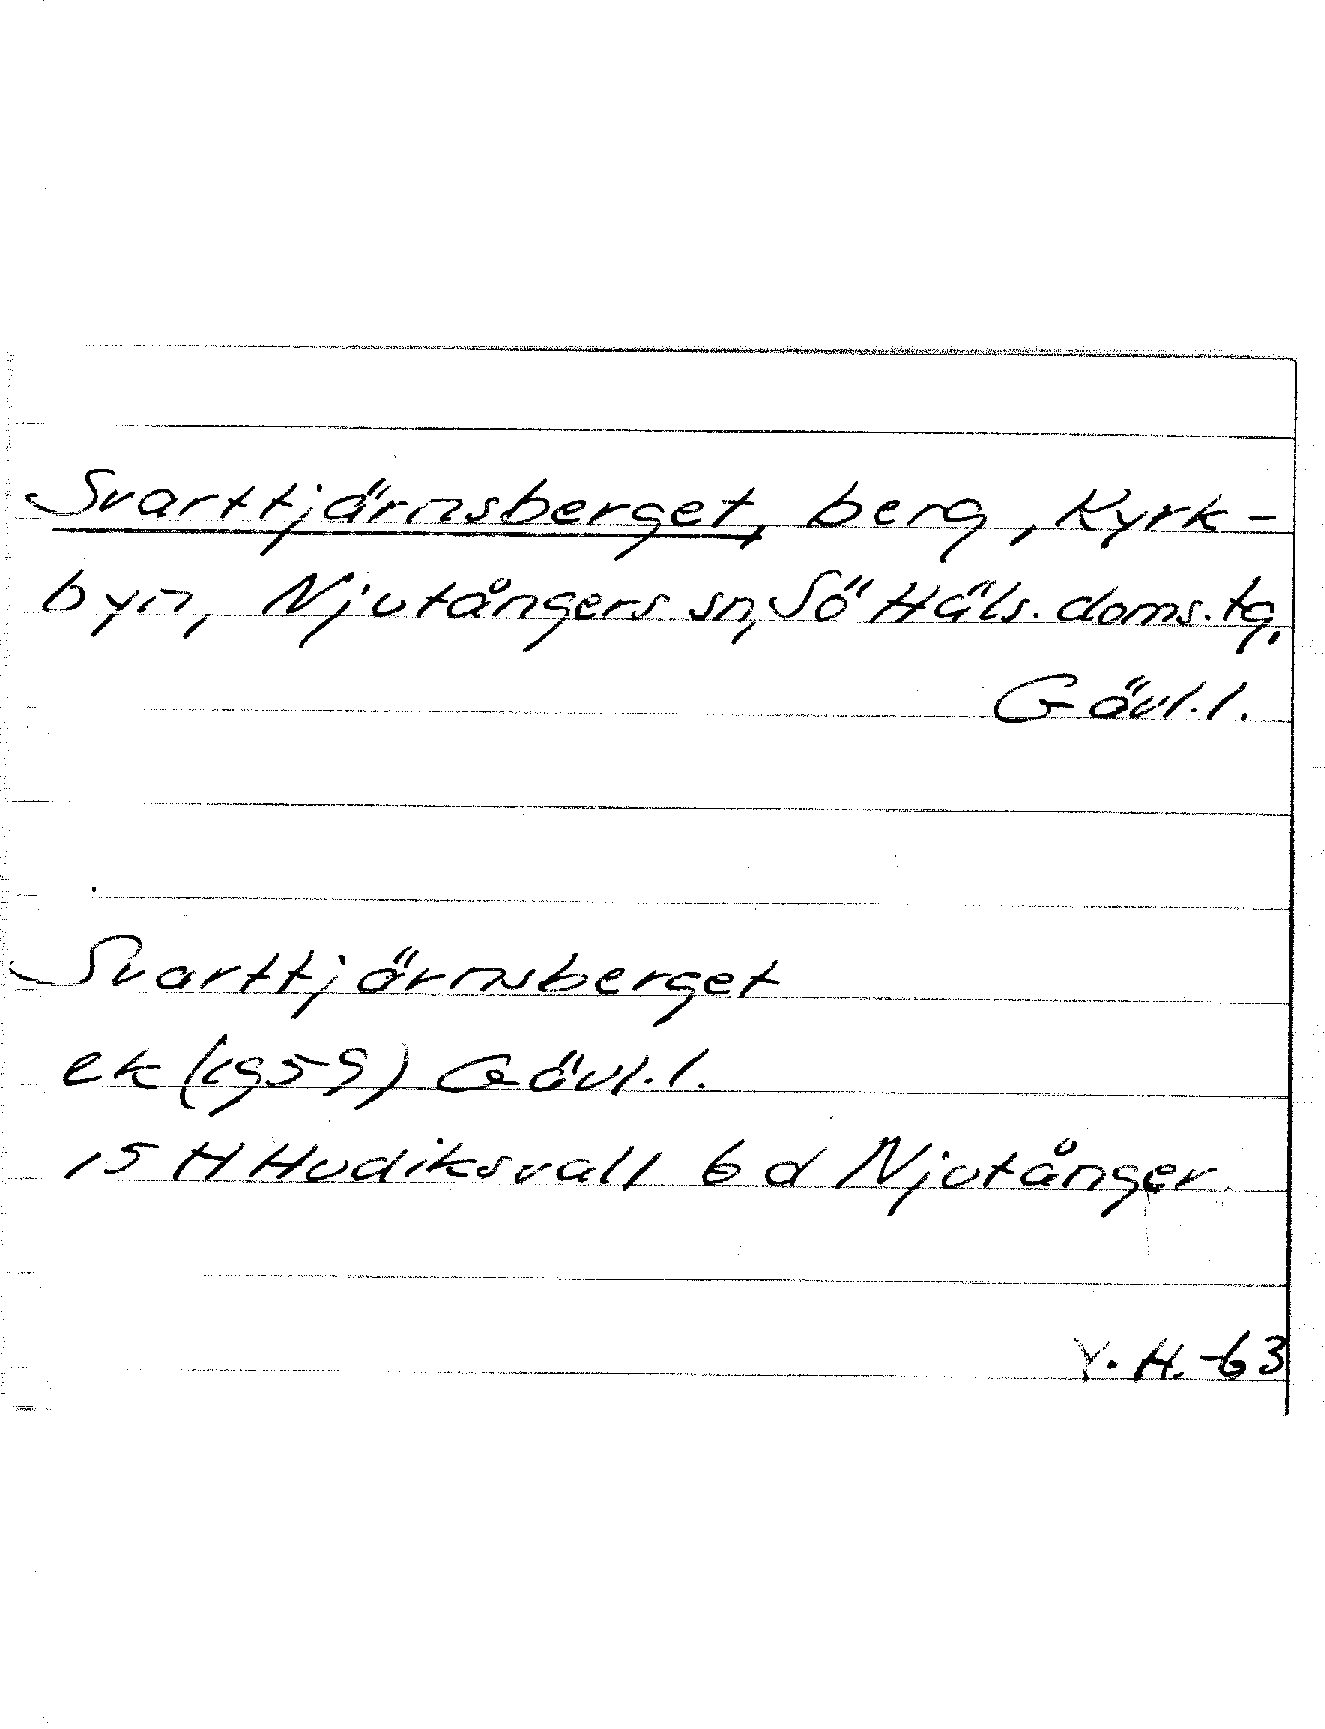 Svarttjärnsberget, berg, Kyrk-
byn, Njutångers sn, Sö Häls. doms. tg,
Gävl. l.
Svarttjärnsberget
ek (1959) Gävl. l.
15 H Hudiksvall 6 d Njutånger
Y. H. -63